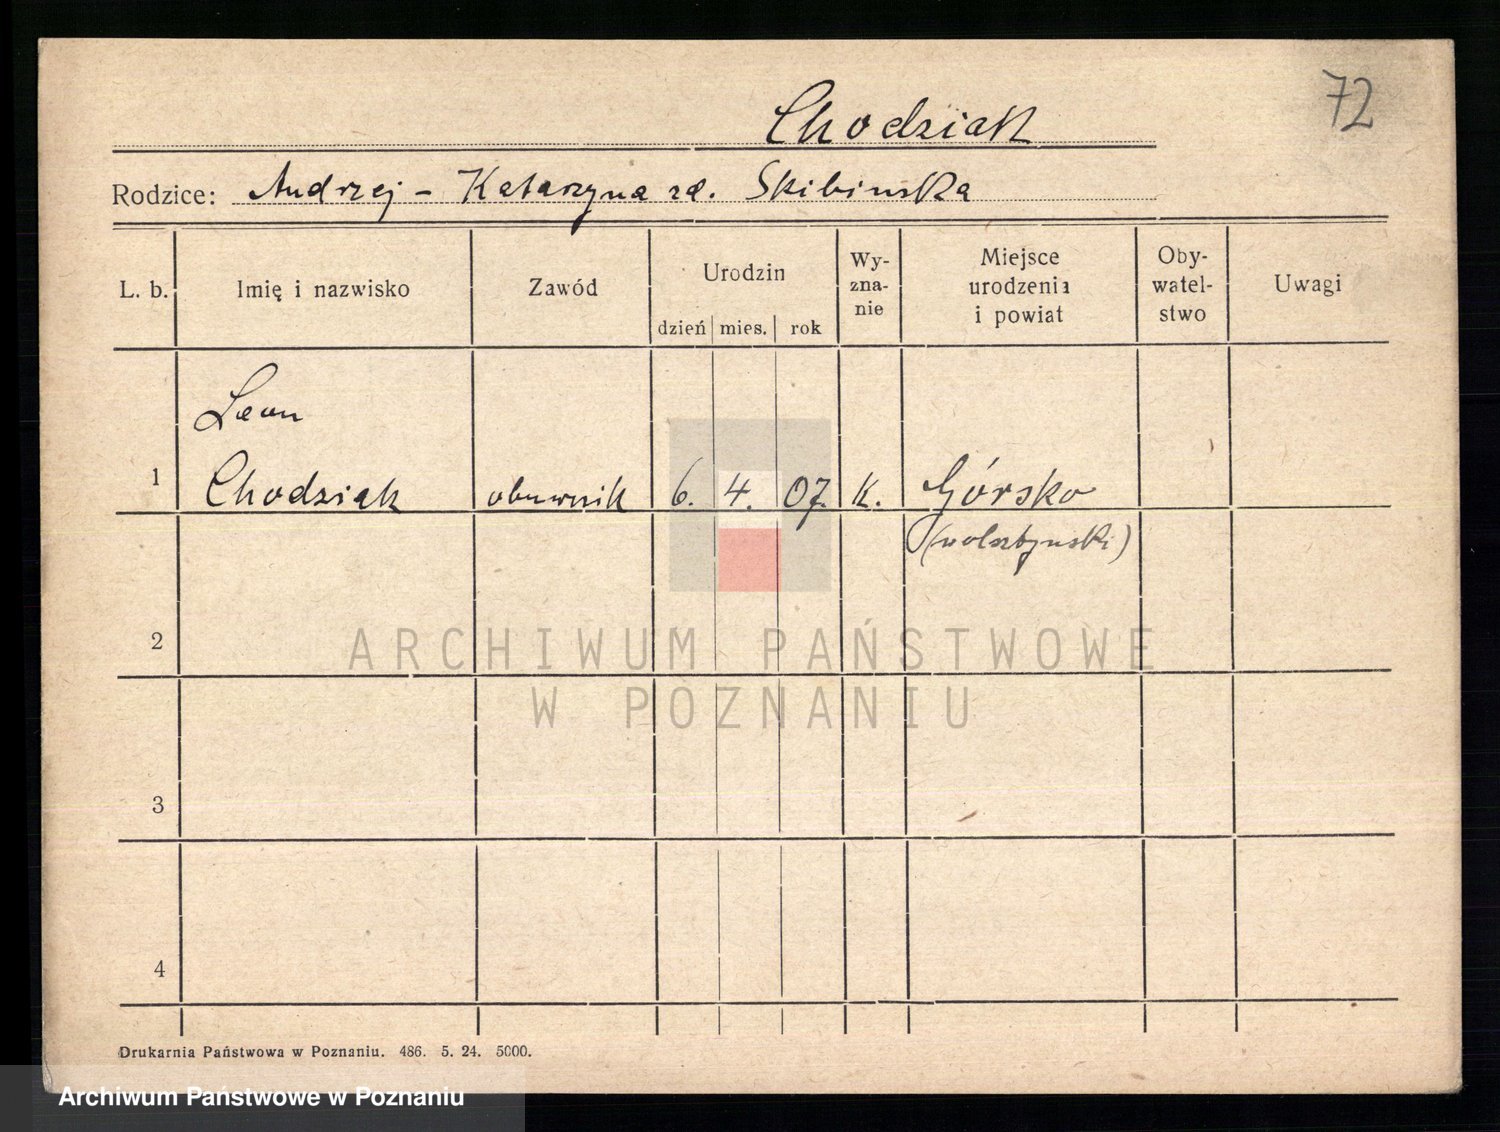 72
Chodziak
Rodzice: Andrzej - Katarzyna zd. Skibinska
L. b.
Imię i nazwisko
Zawód
Urodzin
dzień mies. rok
Wy-
zna-
nie
Miejsce
urodzenia
i powiat
Oby-
watel-
stwo
Uwagi
Leon
1 Chodziak obuwnik 6. 4. 07. k. Górsko
(wolsztynski)
2
ARCHIWUM PAŃSTWOWE
W POZNANIU
3
4
Drukarnia Państwowa w Poznaniu. 486. 5. 24. 5000.
Archiwum Państwowe w Poznaniu